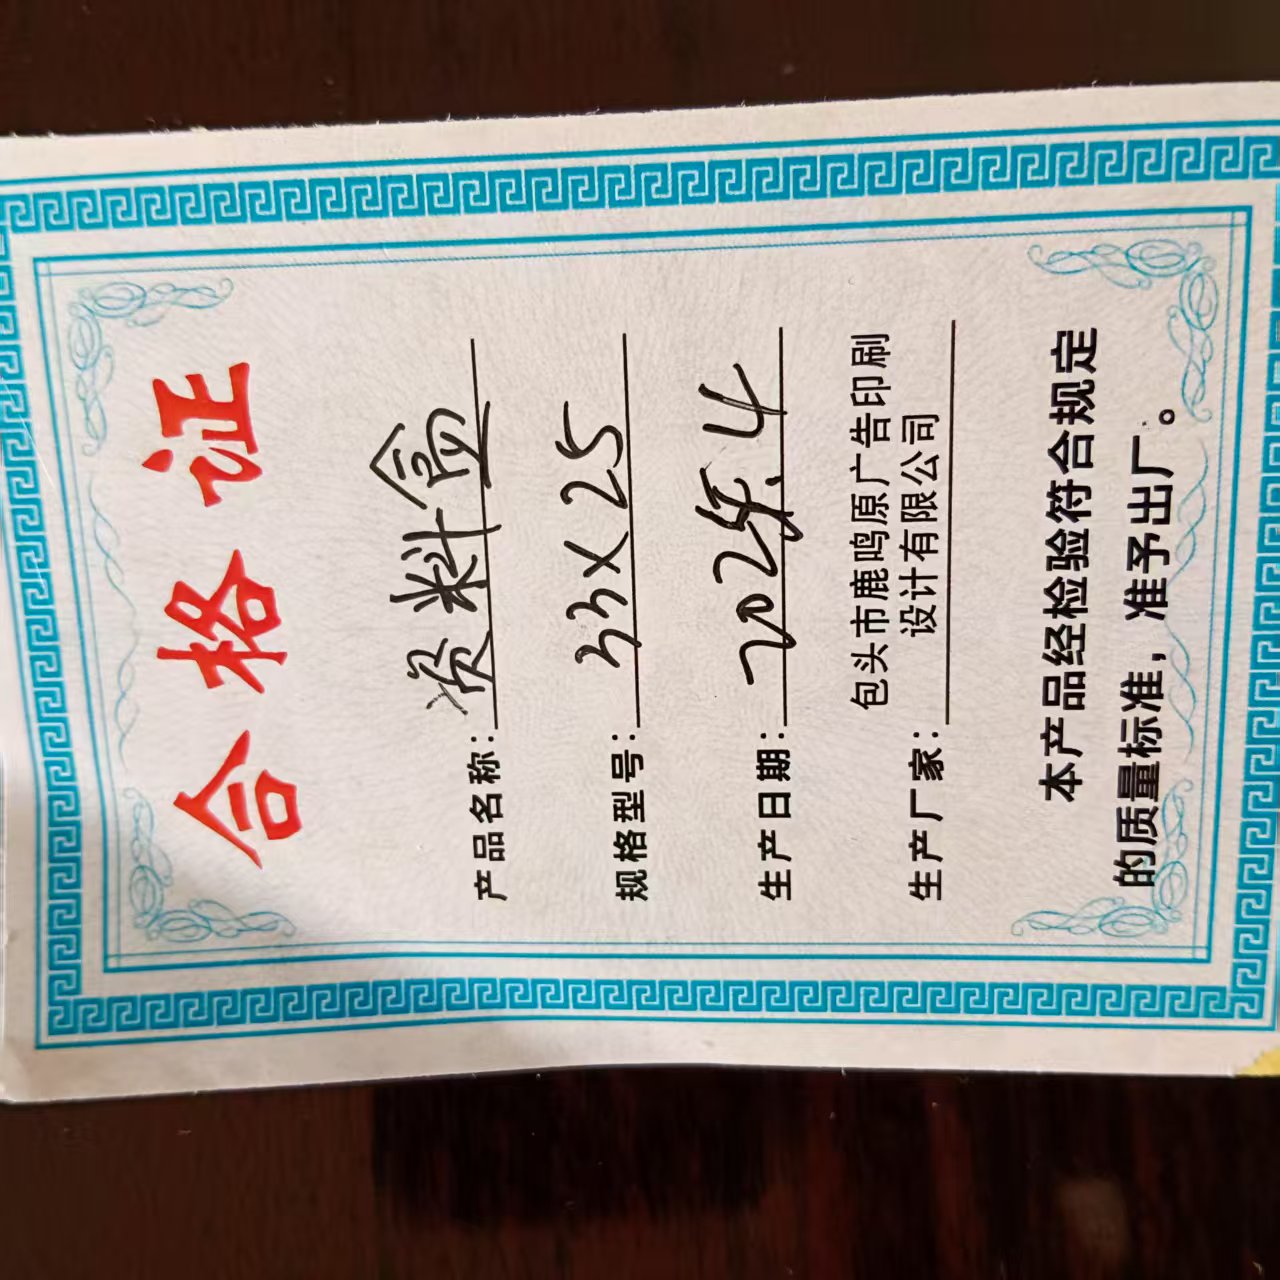 合格证
产品名称：资料盒
规格型号：33×25
生产日期：202年.4
生产厂家：包头市鹿鸣原广告印刷
设计有限公司
本产品经检验符合规定
的质量标准，准予出厂。